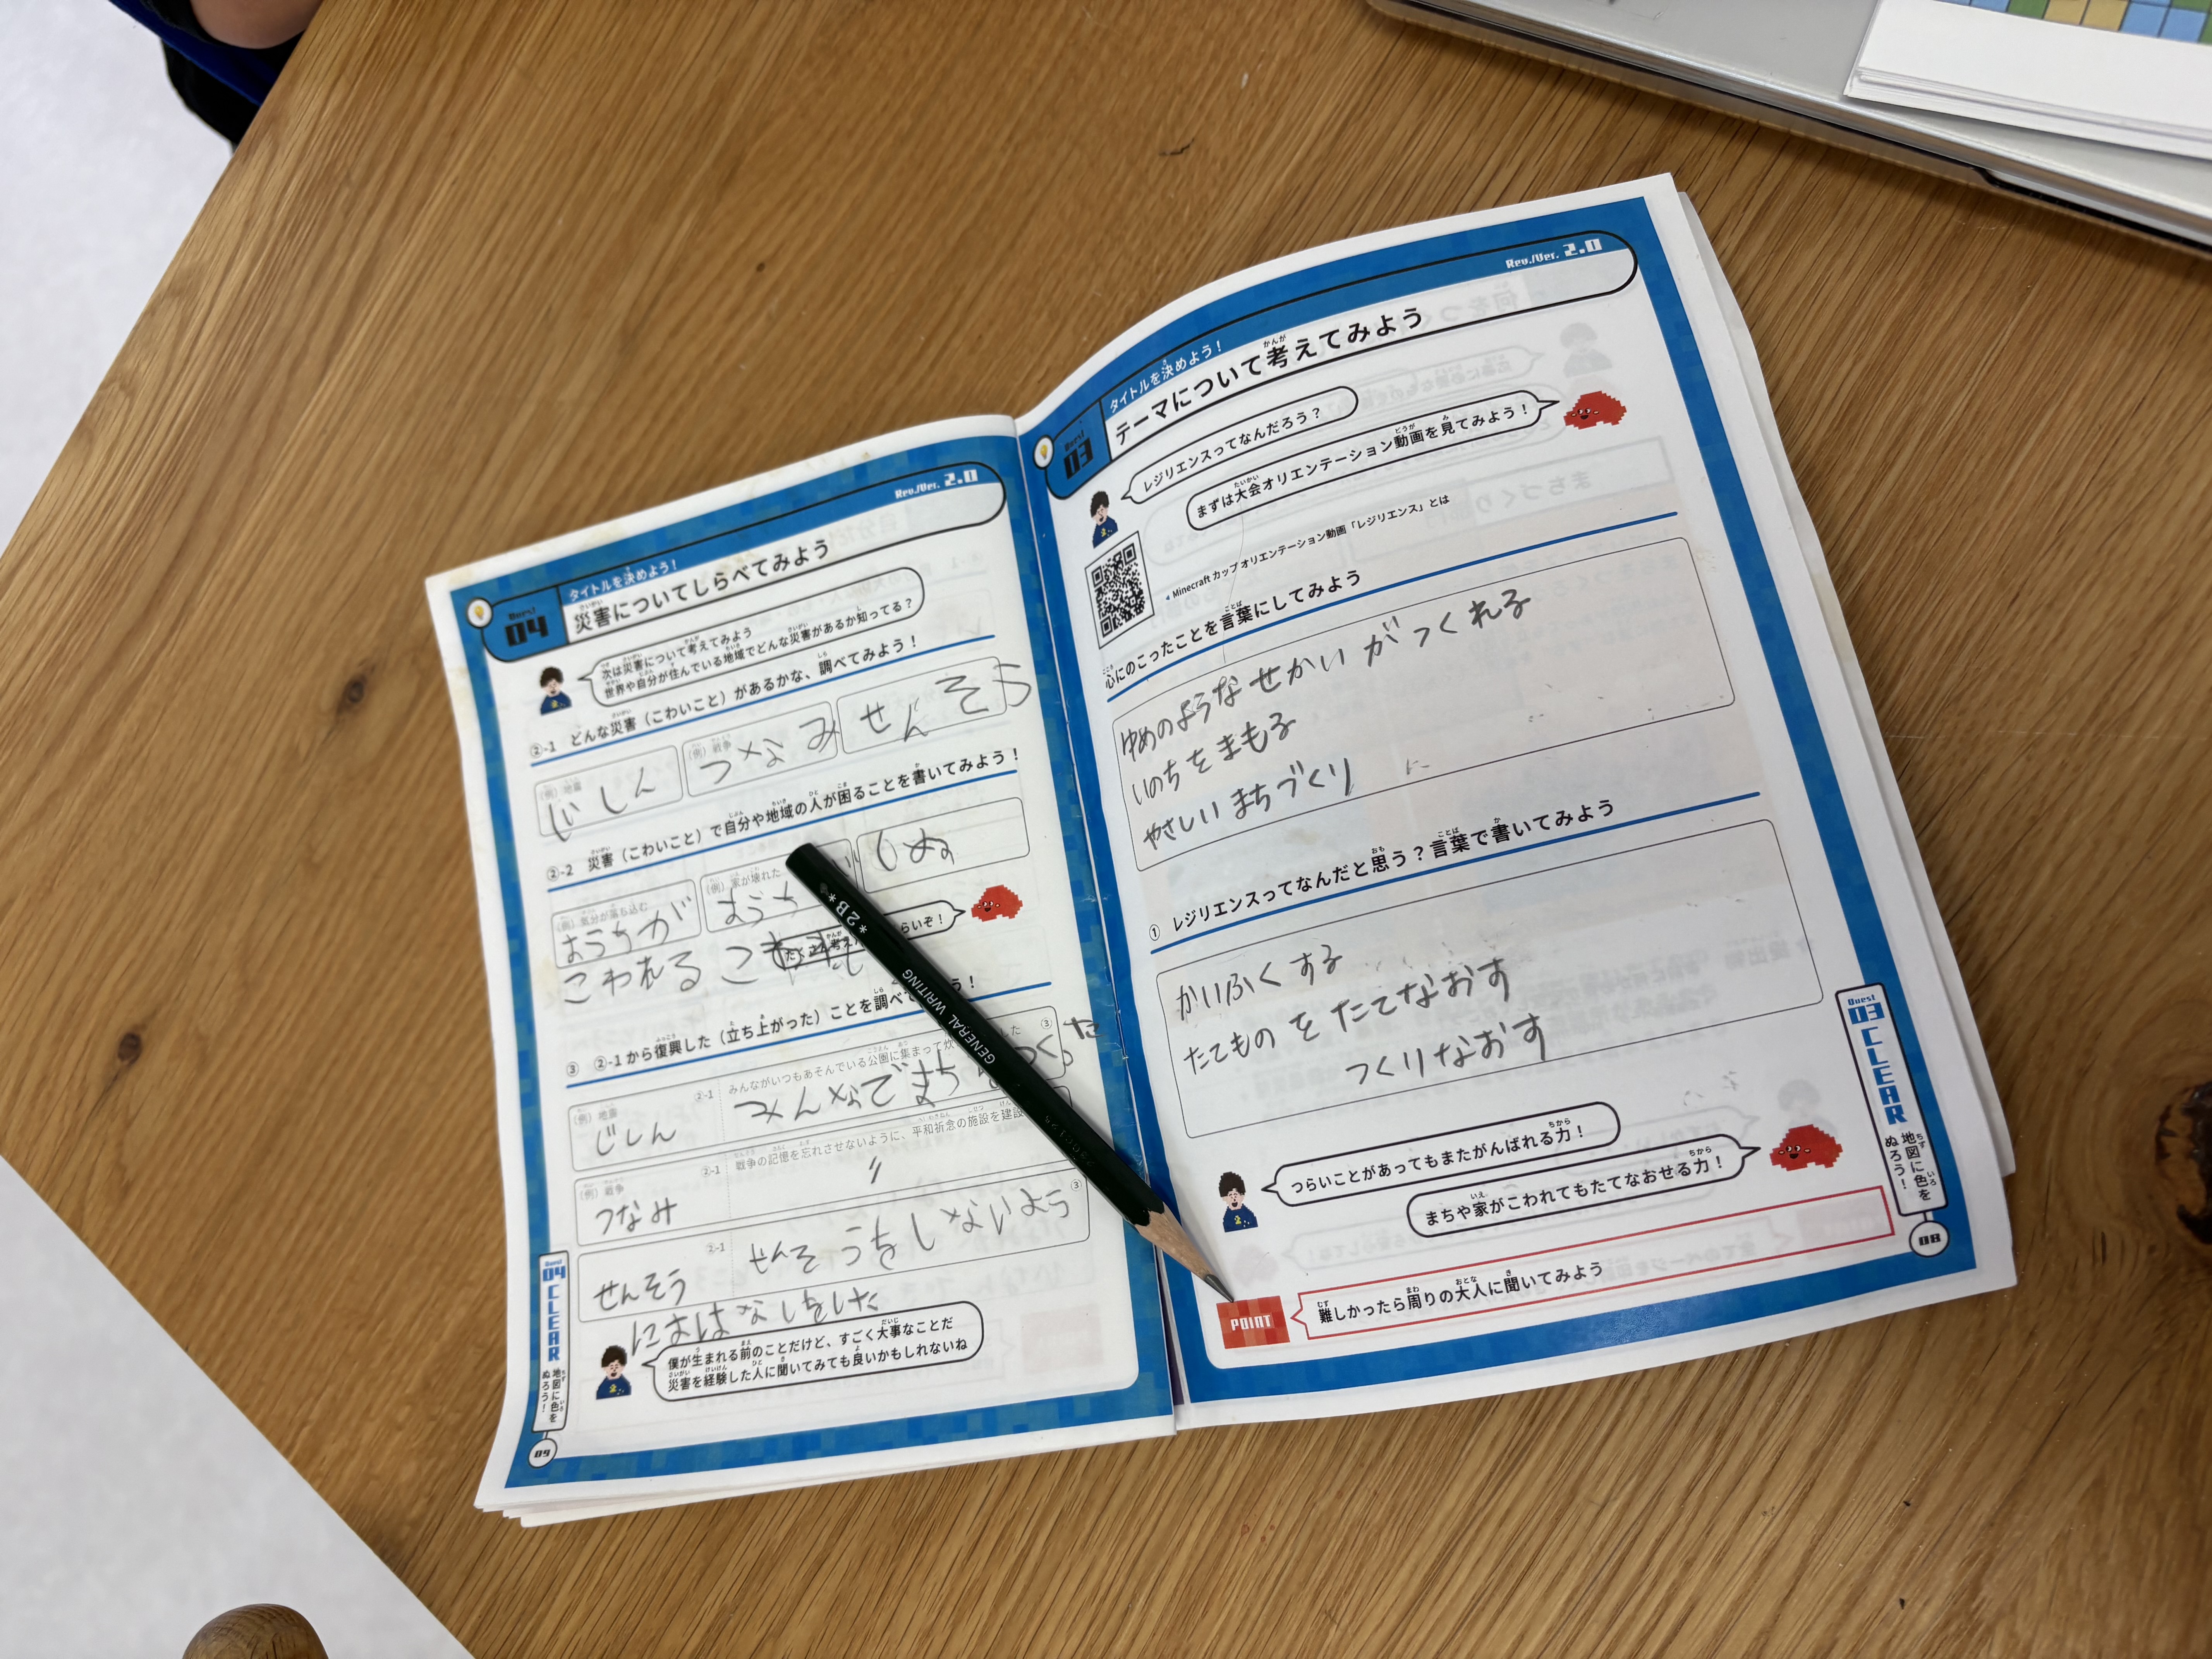 Quest 04
タイトルを決めよう！
Rev./Ver. 2.0
災害についてしらべてみよう
次は災害について考えてみよう
世界や自分が住んでいる地域でどんな災害があるか知ってる？
②-1 どんな災害（こわいこと）があるかな、調べてみよう！
（例）地震
（例）戦争
じしん
つなみ
せんそう
②-2 災害（こわいこと）で自分や地域の人が困ることを書いてみよう！
（例）気分が落ち込む
（例）家が壊れた
おうちが
こわれる
おうち
しぬ
らいぞ！
③ ②-1から復興した（立ち上がった）ことを調べて
う！
（例）地震
②-1
みんながいつもあそんでいる公園に集まって炊
した
③
じしん
みんなでまち
つくった
（例）戦争
②-1
戦争の記憶を忘れさせないように、平和祈念の施設を建設
つなみ
〃
②-1
③
せんそう
せんそうをしないよう
におはなしをした
僕が生まれる前のことだけど、すごく大事なことだ
災害を経験した人に聞いてみても良いかもしれないね
Quest 04 CLEAR
地図に色をぬろう！
09
*2B*
GENERAL WRITING
Quest 03
タイトルを決めよう！
Rev./Ver. 2.0
テーマについて考えてみよう
レジリエンスってなんだろう？
まずは大会オリエンテーション動画を見てみよう！
Minecraft カップ オリエンテーション動画「レジリエンス」とは
心にのこったことを言葉にしてみよう
ゆめのようなせかいがつくれる
いのちをまもる
やさしいまちづくり
① レジリエンスってなんだと思う？言葉で書いてみよう
かいふくする
たてものをたてなおす
つくりなおす
つらいことがあってもまたがんばれる力！
まちや家がこわれてもたてなおせる力！
POINT
難しかったら周りの大人に聞いてみよう
Quest 03 CLEAR
地図に色をぬろう！
08